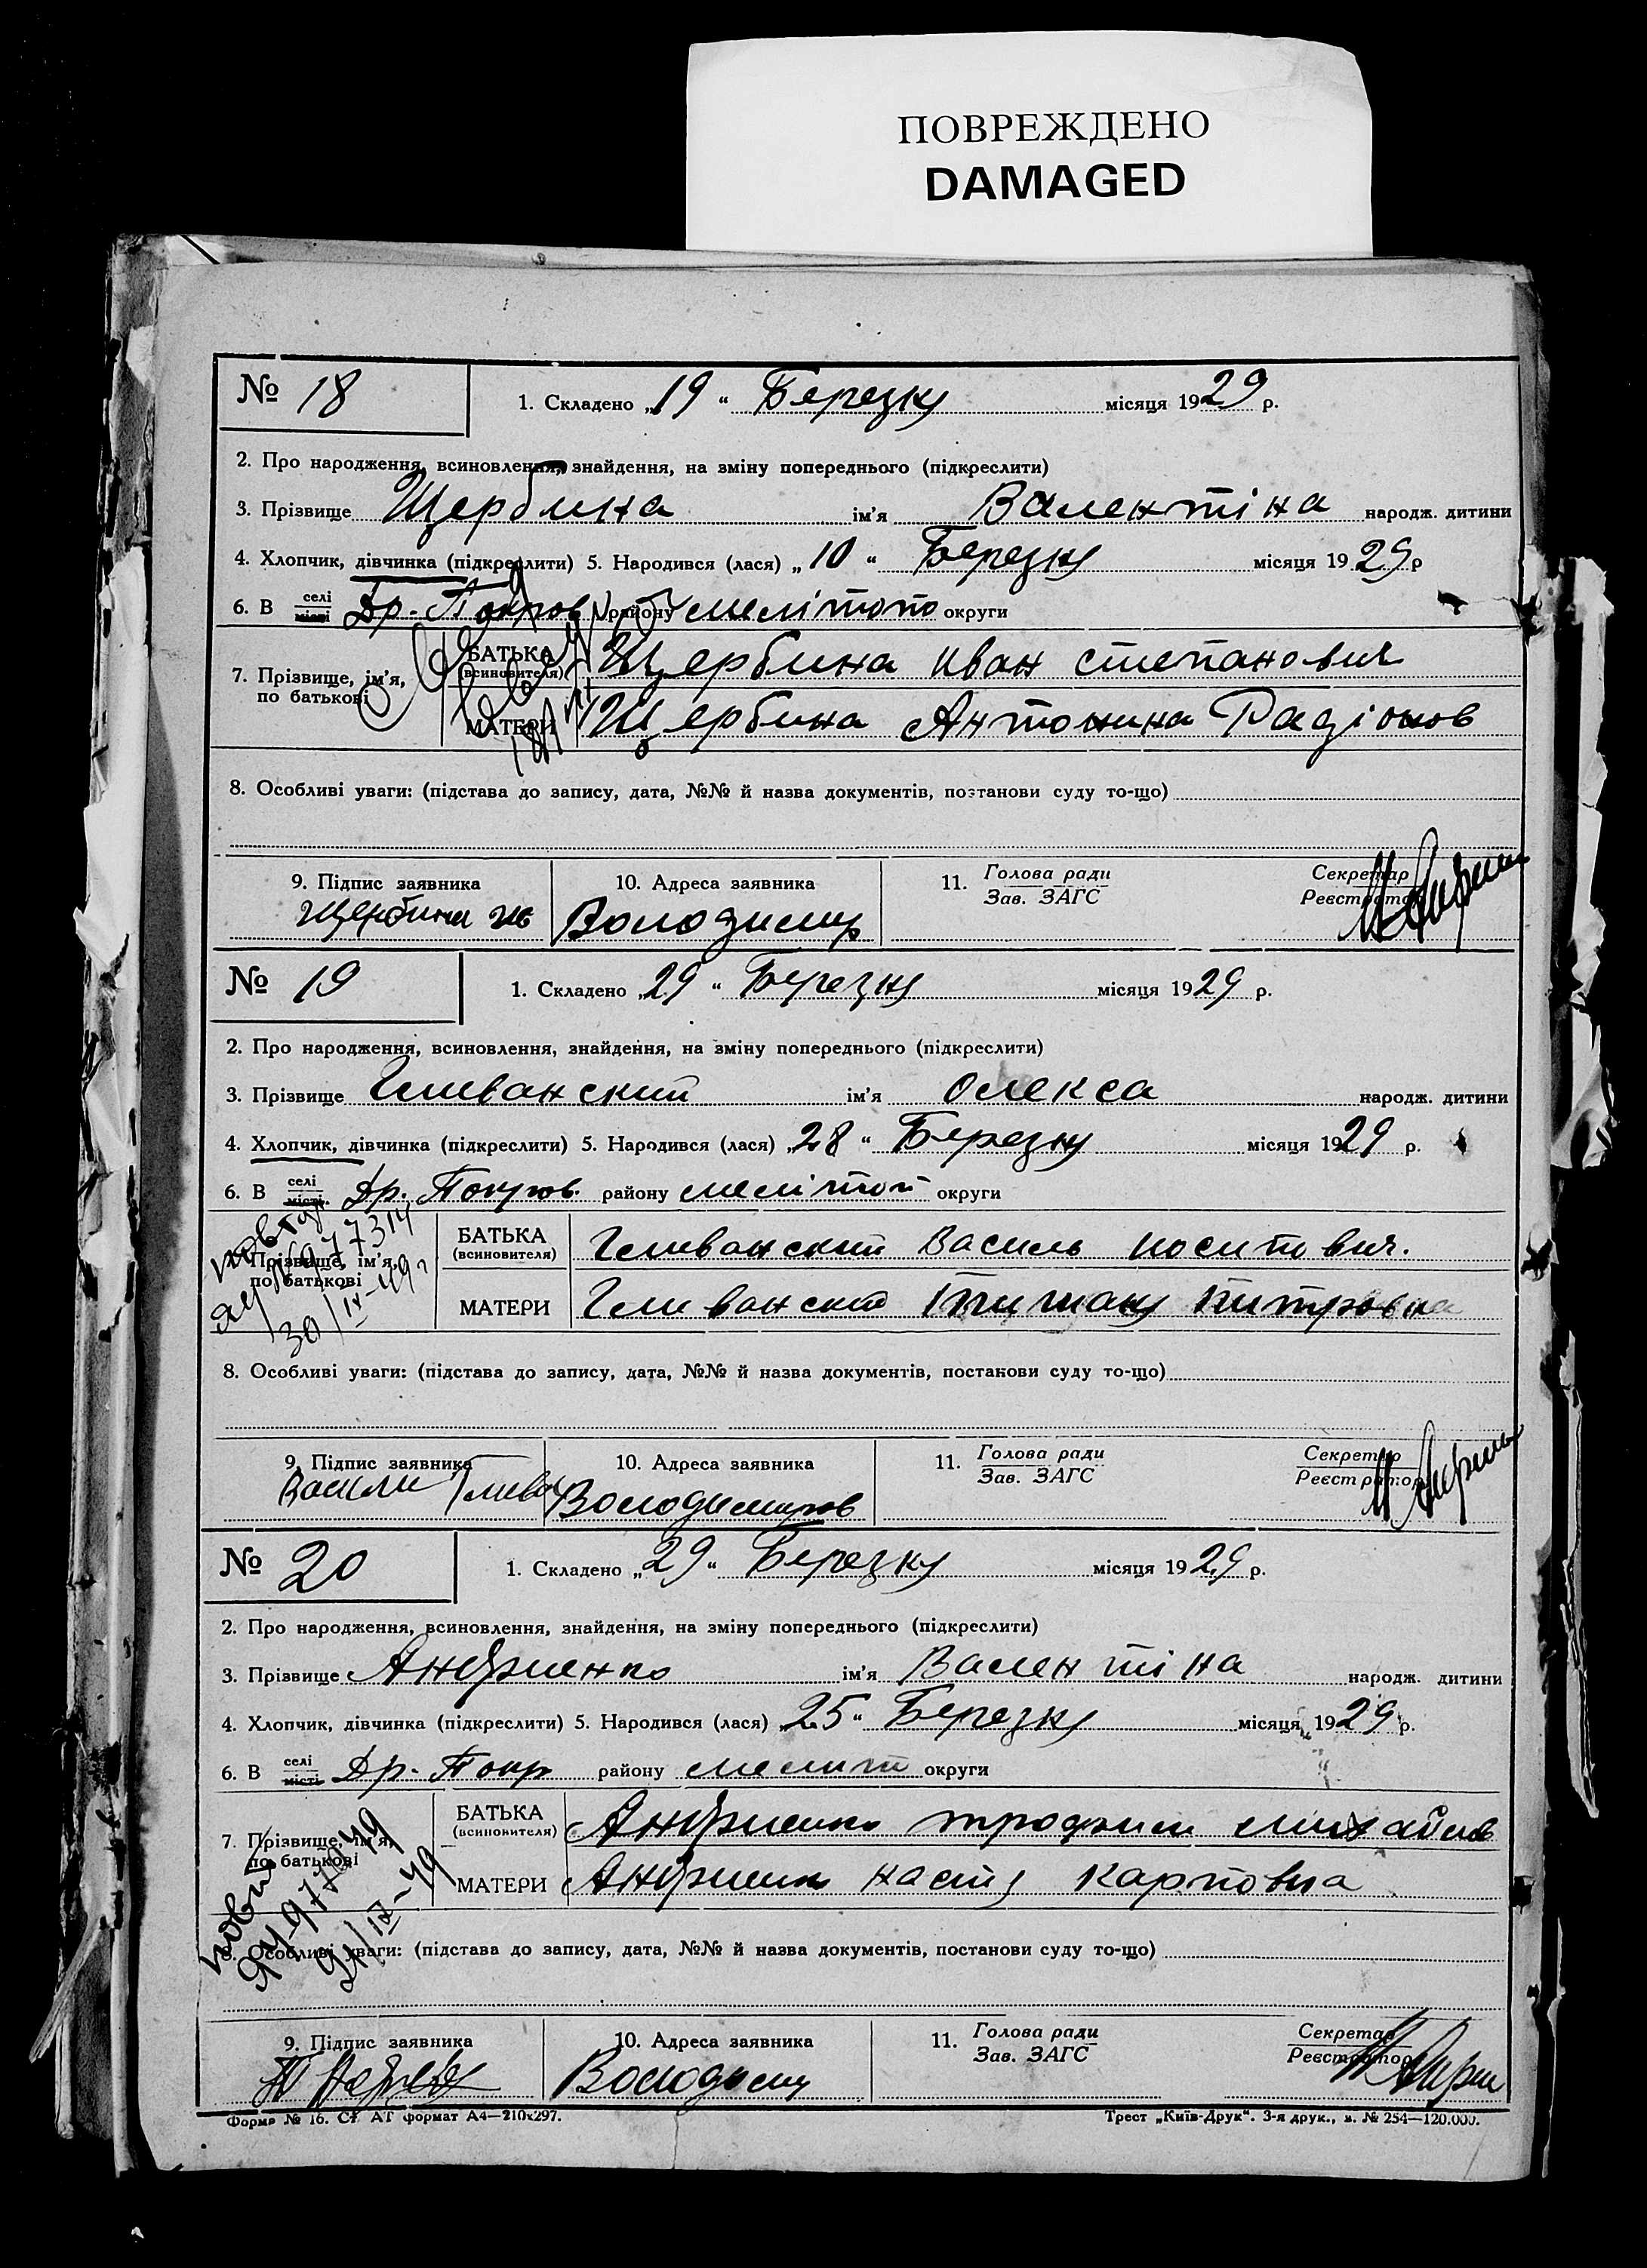 ПОВРЕЖДЕНО
DAMAGED
№ 18 1. Складено „19“ Березня місяця 1929 р.
2. Про народження, всиновлення, знайдення, на зміну попереднього (підкреслити)
3. Прізвище Щербина ім'я Валентіна народж. дитини
4. Хлопчик, дівчинка (підкреслити) 5. Народився (лася) „10“ Березня місяця 1929 р
6. В селі місті Др.-Покров району мелітоп округи
7. Прізвище, ім'я, по батькові
БАТЬКА (всиновителя) Щербина иван степанович
МАТЕРИ Щербина Антонина Радіонов
8. Особливі уваги: (підстава до запису, дата, №№ й назва документів, постанови суду то-що)
9. Підпис заявника 10. Адреса заявника 11. Голова ради Секретар
Зав. ЗАГС Реєстратор
Щербина Володимир
№ 19 1. Складено „29“ Березня місяця 1929 р.
2. Про народження, всиновлення, знайдення, на зміну попереднього (підкреслити)
3. Прізвище Гливанский ім'я Олекса народж. дитини
4. Хлопчик, дівчинка (підкреслити) 5. Народився (лася) „28“ Березня місяця 1929 р.
6. В селі місті Др. Покров. району мелітоп округи
Прізвище, ім'я, по батькові
БАТЬКА (всиновителя) Гливанский Василь иосипович.
МАТЕРИ Гливанский Питровна
30/IX-49 г
8. Особливі уваги: (підстава до запису, дата, №№ й назва документів, постанови суду то-що)
9. Підпис заявника 10. Адреса заявника 11. Голова ради Секретар
Зав. ЗАГС Реєстратор
Васили Глива Володимиров
№ 20 1. Складено „29“ Березня місяця 1929 р.
2. Про народження, всиновлення, знайдення, на зміну попереднього (підкреслити)
3. Прізвище Андриенко ім'я Валентіна народж. дитини
4. Хлопчик, дівчинка (підкреслити) 5. Народився (лася) „25“ Березня місяця 1929 р.
6. В селі місті Др.-Покр району мелит округи
7. Прізвище, ім'я, по батькові
БАТЬКА (всиновителя) Андриенко трофим михайлов
МАТЕРИ Андриенко настя карповна
8. Особливі уваги: (підстава до запису, дата, №№ й назва документів, постанови суду то-що)
9. Підпис заявника 10. Адреса заявника 11. Голова ради Секретар
Зав. ЗАГС Реєстратор
Володими
Форма № 16. Ст. АТ формат А4—210х297. Трест „Київ-Друк“. 3-я друк., з. № 254—120.000.